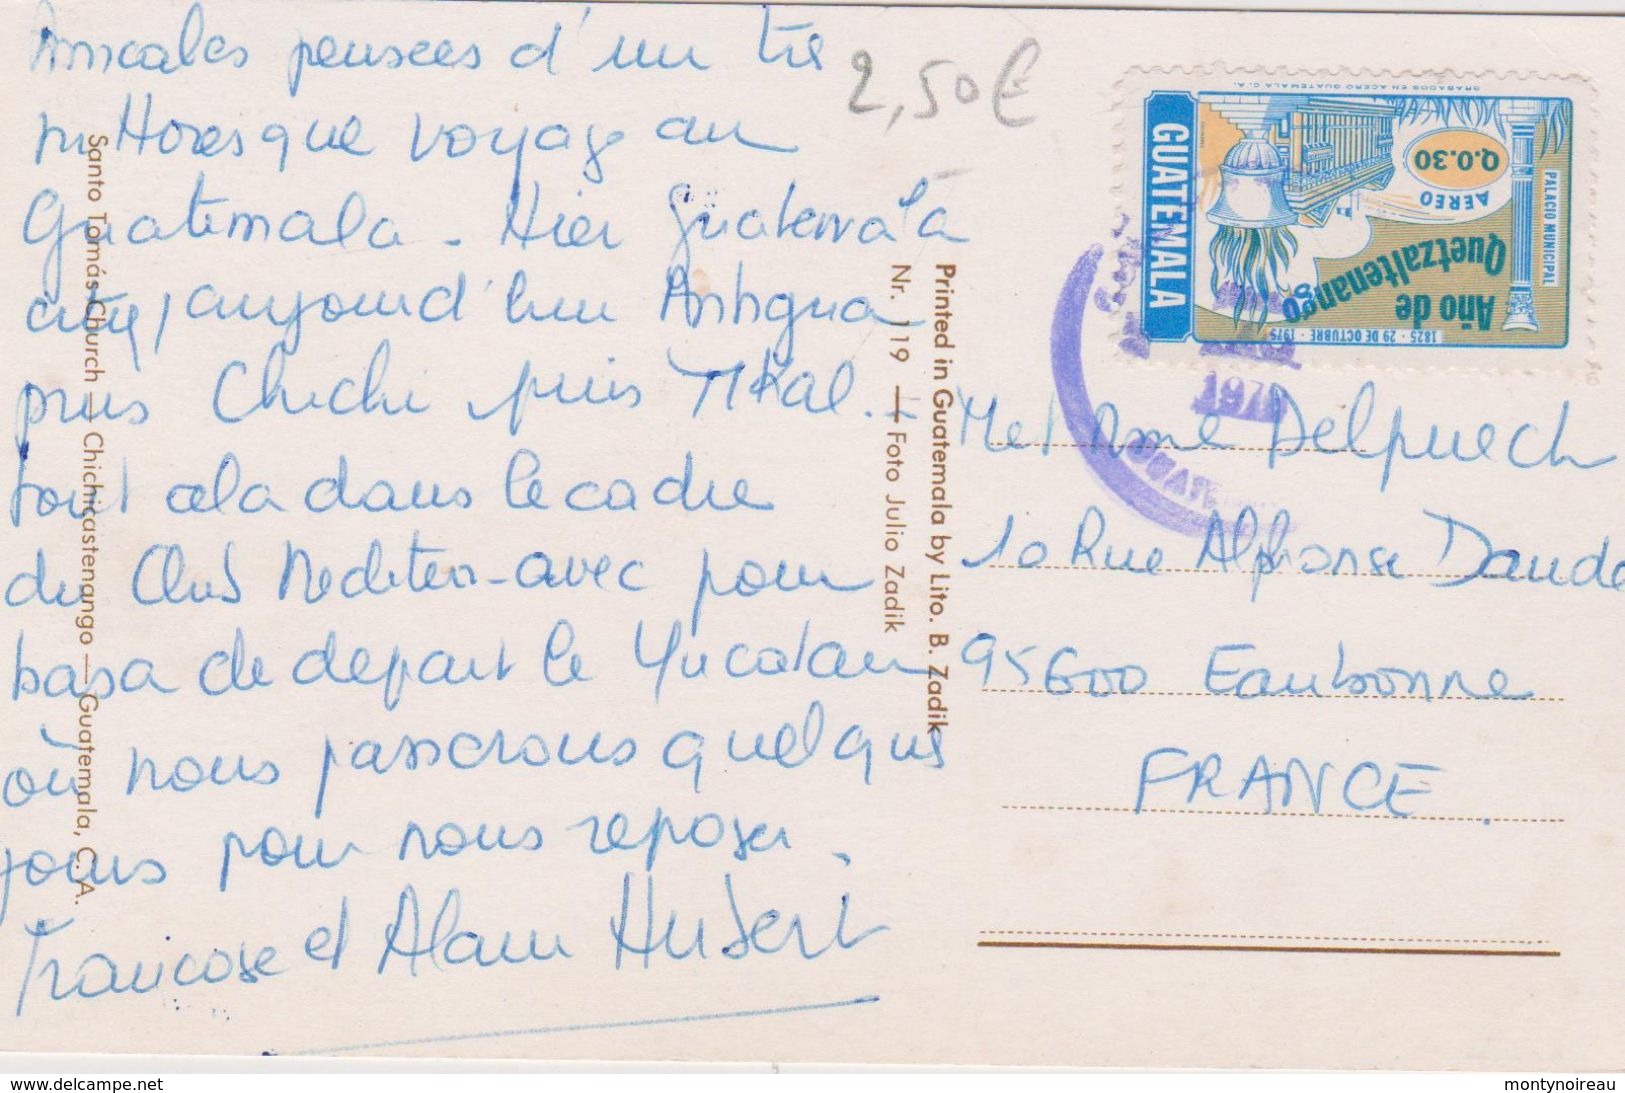 Amicales pensées d'un très
pittoresque voyage au
Guatemala. Hier Guatemala
city, aujourd'hui Antigua
puis Chichi puis Tikal.
tout cela dans le cadre
du Club Mediter- avec pour
base de depart le Yucatan
où nous passerons quelques
jours pour nous reposer.
Francoise et Alain Hubert
2,50€
Santo Tomás Church — Chichicastenango — Guatemala, C. A.
Printed in Guatemala by Lito. B. Zadik
Nr. 119 — Foto Julio Zadik
GUATEMALA
GRABADOS EN ACERO GUATEMALA C.A.
Q.0.30
AEREO
PALACIO MUNICIPAL
Año de
Quetzaltenango
1825 - 29 DE OCTUBRE - 1975
M et Mme Delpuech
10 Rue Alphonse Daude
95600 Eaubonne
FRANCE.
delcampe.net
montynoireau